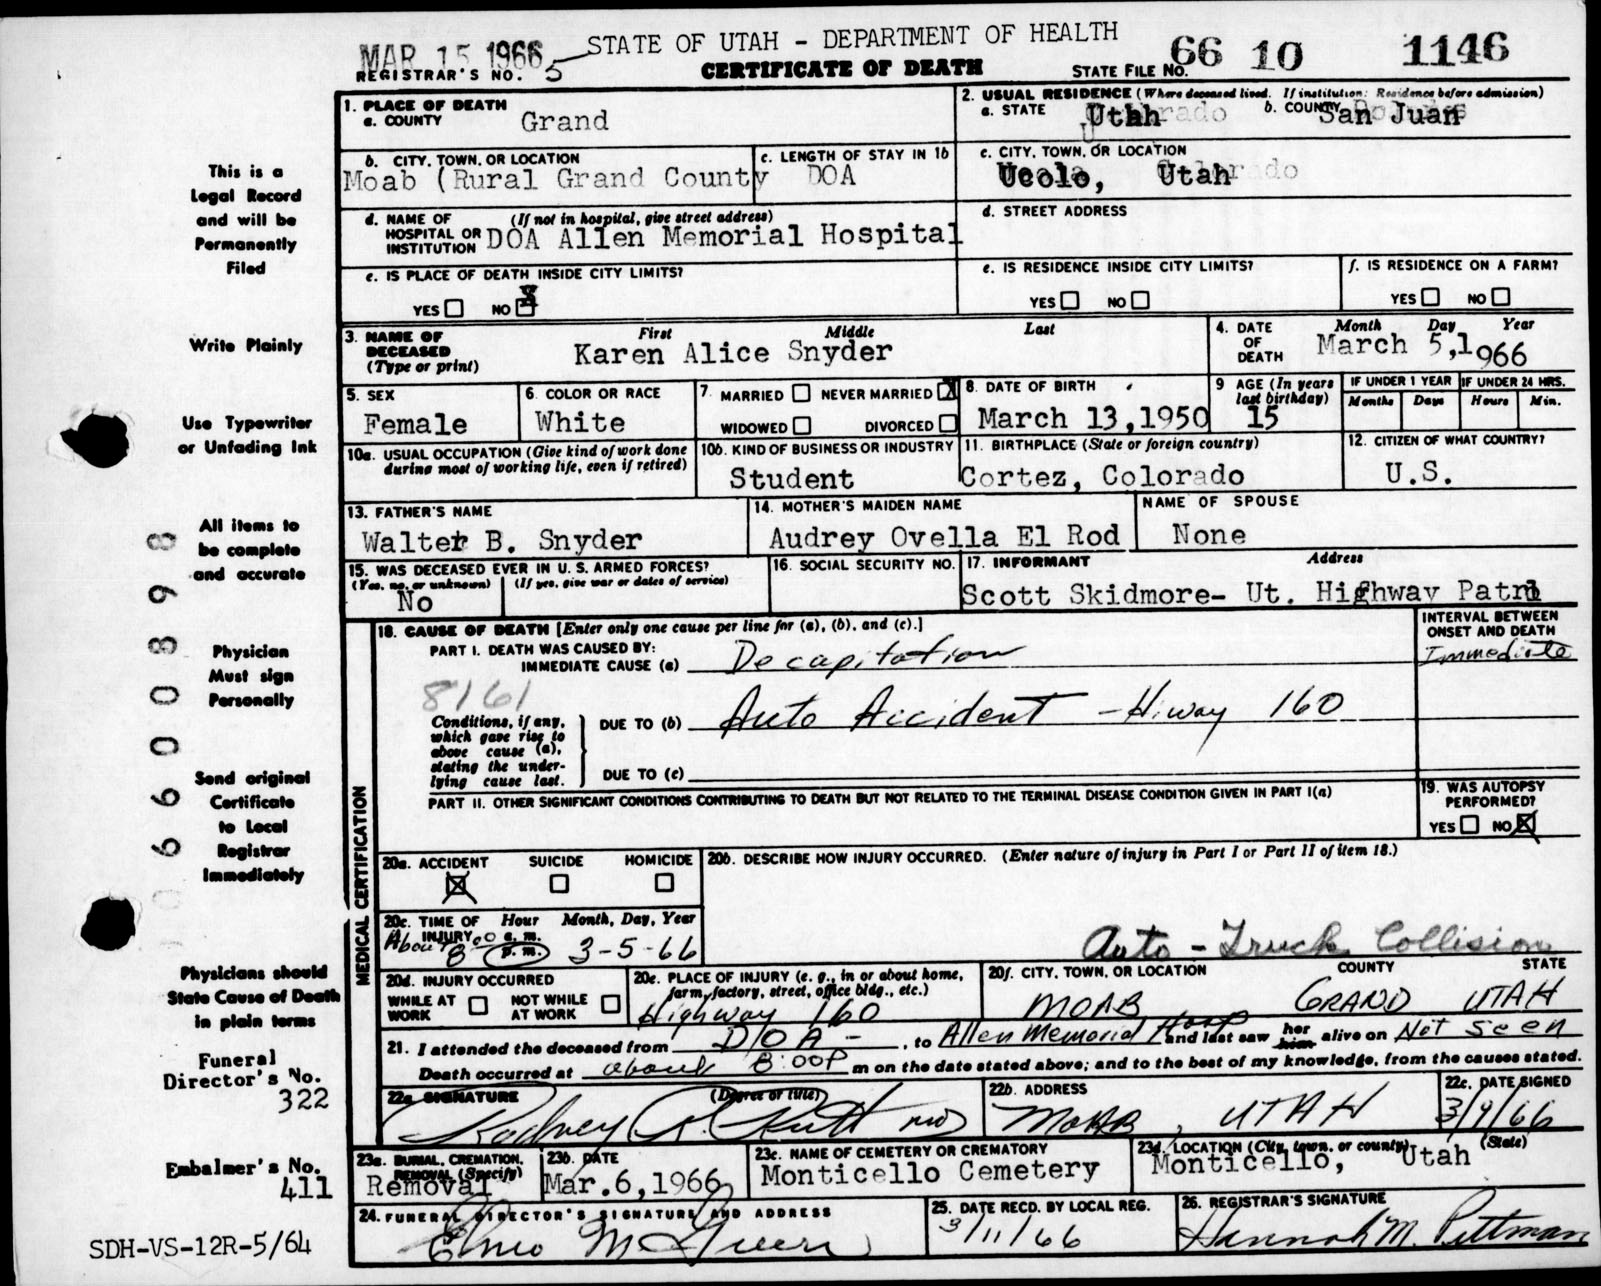 MAR 15 1966
STATE OF UTAH - DEPARTMENT OF HEALTH
66 10 1146
REGISTRAR'S NO. 5
CERTIFICATE OF DEATH
STATE FILE NO.
1. PLACE OF DEATH
a. COUNTY Grand
2. USUAL RESIDENCE (Where deceased lived. If institution: Residence before admission)
a. STATE Utah b. COUNTY San Juan
b. CITY, TOWN, OR LOCATION
Moab (Rural Grand County
c. LENGTH OF STAY IN 1b
DOA
c. CITY, TOWN, OR LOCATION
Ucolo, Utah
d. NAME OF HOSPITAL OR INSTITUTION (If not in hospital, give street address)
DOA Allen Memorial Hospital
d. STREET ADDRESS
e. IS PLACE OF DEATH INSIDE CITY LIMITS?
YES NO X
e. IS RESIDENCE INSIDE CITY LIMITS?
YES NO
f. IS RESIDENCE ON A FARM?
YES NO
3. NAME OF DECEASED (Type or print)
First Middle Last
Karen Alice Snyder
4. DATE OF DEATH
Month Day Year
March 5,1966
5. SEX
Female
6. COLOR OR RACE
White
7. MARRIED NEVER MARRIED X
WIDOWED DIVORCED
8. DATE OF BIRTH
March 13,1950
9 AGE (In years last birthday)
15
IF UNDER 1 YEAR
Months Days
IF UNDER 24 HRS.
Hours Min.
10a. USUAL OCCUPATION (Give kind of work done during most of working life, even if retired)
10b. KIND OF BUSINESS OR INDUSTRY
Student
11. BIRTHPLACE (State or foreign country)
Cortez, Colorado
12. CITIZEN OF WHAT COUNTRY?
U.S.
13. FATHER'S NAME
Walter B. Snyder
14. MOTHER'S MAIDEN NAME
Audrey Ovella El Rod
NAME OF SPOUSE
None
15. WAS DECEASED EVER IN U. S. ARMED FORCES?
(Yes, no, or unknown) (If yes, give war or dates of service)
No
16. SOCIAL SECURITY NO.
17. INFORMANT Address
Scott Skidmore- Ut. Highway Patrl
18. CAUSE OF DEATH [Enter only one cause per line for (a), (b), and (c).]
INTERVAL BETWEEN ONSET AND DEATH
PART I. DEATH WAS CAUSED BY:
IMMEDIATE CAUSE (a) Decapitation
Immediate
8161
Conditions, if any, which gave rise to above cause (a), stating the under-lying cause last.
DUE TO (b) Auto Accident - Hiway 160
DUE TO (c)
PART II. OTHER SIGNIFICANT CONDITIONS CONTRIBUTING TO DEATH BUT NOT RELATED TO THE TERMINAL DISEASE CONDITION GIVEN IN PART I(a)
19. WAS AUTOPSY PERFORMED?
YES NO X
MEDICAL CERTIFICATION
20a. ACCIDENT SUICIDE HOMICIDE
X
20b. DESCRIBE HOW INJURY OCCURRED. (Enter nature of injury in Part I or Part II of item 18.)
Auto - Truck Collision
20c. TIME OF INJURY Hour Month, Day, Year
a. m.
p. m.
About 8 00 3-5-66
20d. INJURY OCCURRED
WHILE AT WORK NOT WHILE AT WORK
20e. PLACE OF INJURY (e. g., in or about home, farm, factory, street, office bldg., etc.)
Highway 160
20f. CITY, TOWN, OR LOCATION COUNTY STATE
MOAB GRAND UTAH
21. I attended the deceased from DOA - , to Allen Memorial Hosp and last saw her him alive on Not seen
Death occurred at about 8:00P m on the date stated above; and to the best of my knowledge, from the causes stated.
22a SIGNATURE (Degree or title)
Rodney MD
22b. ADDRESS
MOAB, UTAH
22c. DATE SIGNED
3/9/66
23a. BURIAL, CREMATION, REMOVAL (Specify)
Removal
23b. DATE
Mar.6,1966
23c. NAME OF CEMETERY OR CREMATORY
Monticello Cemetery
23d. LOCATION (City, town, or county) (State)
Monticello, Utah
24. FUNERAL DIRECTOR'S SIGNATURE AND ADDRESS
25. DATE RECD. BY LOCAL REG.
3/11/66
26. REGISTRAR'S SIGNATURE
Hannah M. Pittman
This is a
Legal Record
and will be
Permanently
Filed
Write Plainly
Use Typewriter
or Unfading Ink
All items to
be complete
and accurate
Physician
Must sign
Personally
Send original
Certificate
to Local
Registrar
Immediately
Physicians should
State Cause of Death
in plain terms
Funeral
Director's No.
322
Embalmer's No.
411
SDH-VS-12R-5/64
06600898